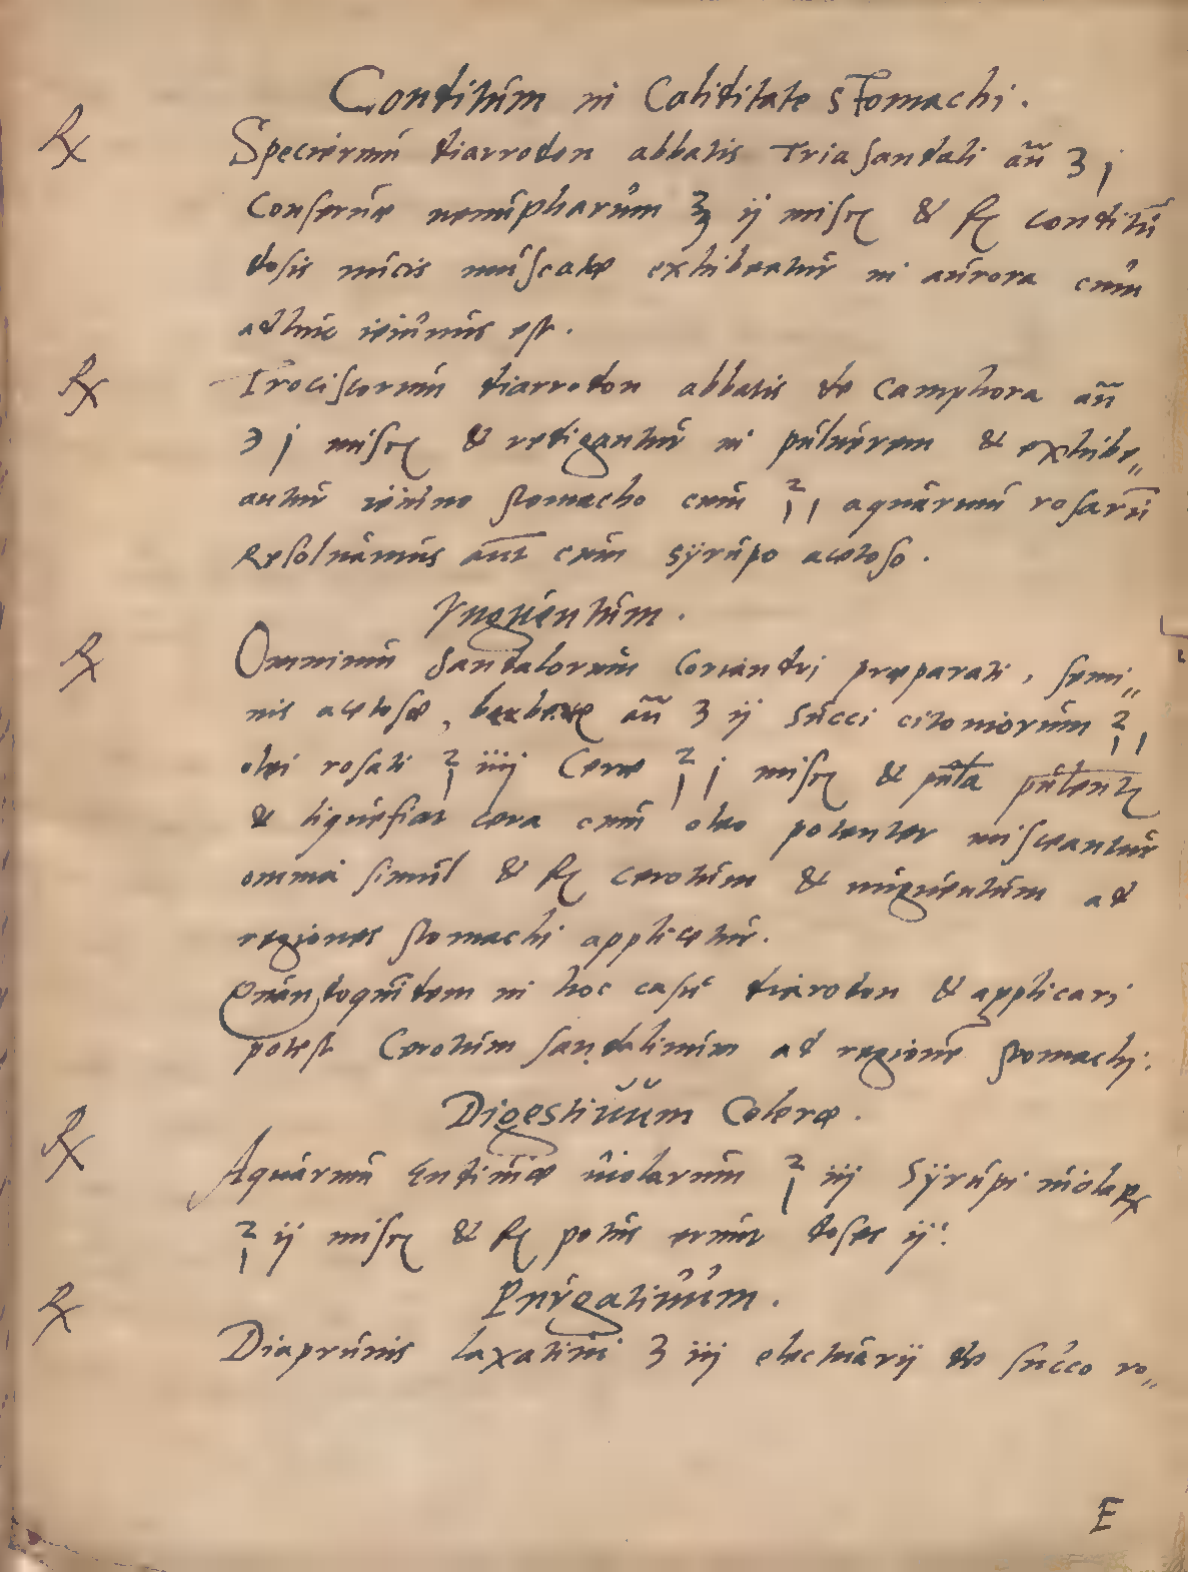 Conditum in Caliditate stomachi.
℞ Specierum diarrodon abbatis Triasandali añ ʒ j
Conseruæ nenupharum ℥ ij misc& & f& conditū
dosis nucis muscatæ exhibeatur in aurora cum
adhuc ieiunus est.
℞ Trociscorum diarrodon abbatis de Camphora añ
℈ j misc& & redigantur in puluerem & exhibe„
antur ieiuno stomacho cum ℥ j aquarum rosarū
Resoluamus aut cum syrupo acetoso.
Vnguentum.
℞ Omnium Sandalorum Coriandri præparati, semi„
nis acetosæ, berberæ añ ʒ ij Succi citoniorum ℥ j
olei rosati ℥ iiij Ceræ ℥ j misc& & pulā
& liquefiat cera cum oleo potenter misceantur
omnia simul & f& cerotum & unguentum ad
regiones stomachi applicetur.
Quandoquidem in hoc casu diarodon & applicari
potest Cerotum sandalinum ad regionē stomachi:
Digestiuum Coleræ.
℞ Aquarum Endiuiæ uiolarum ℥ iij Syrupi uiola℞
℥ ij misc& & f& potus erunt doses ij:
Purgatiuum.
℞ Diaprunis laxatiui ʒ iij electuarij de succo ro„
E